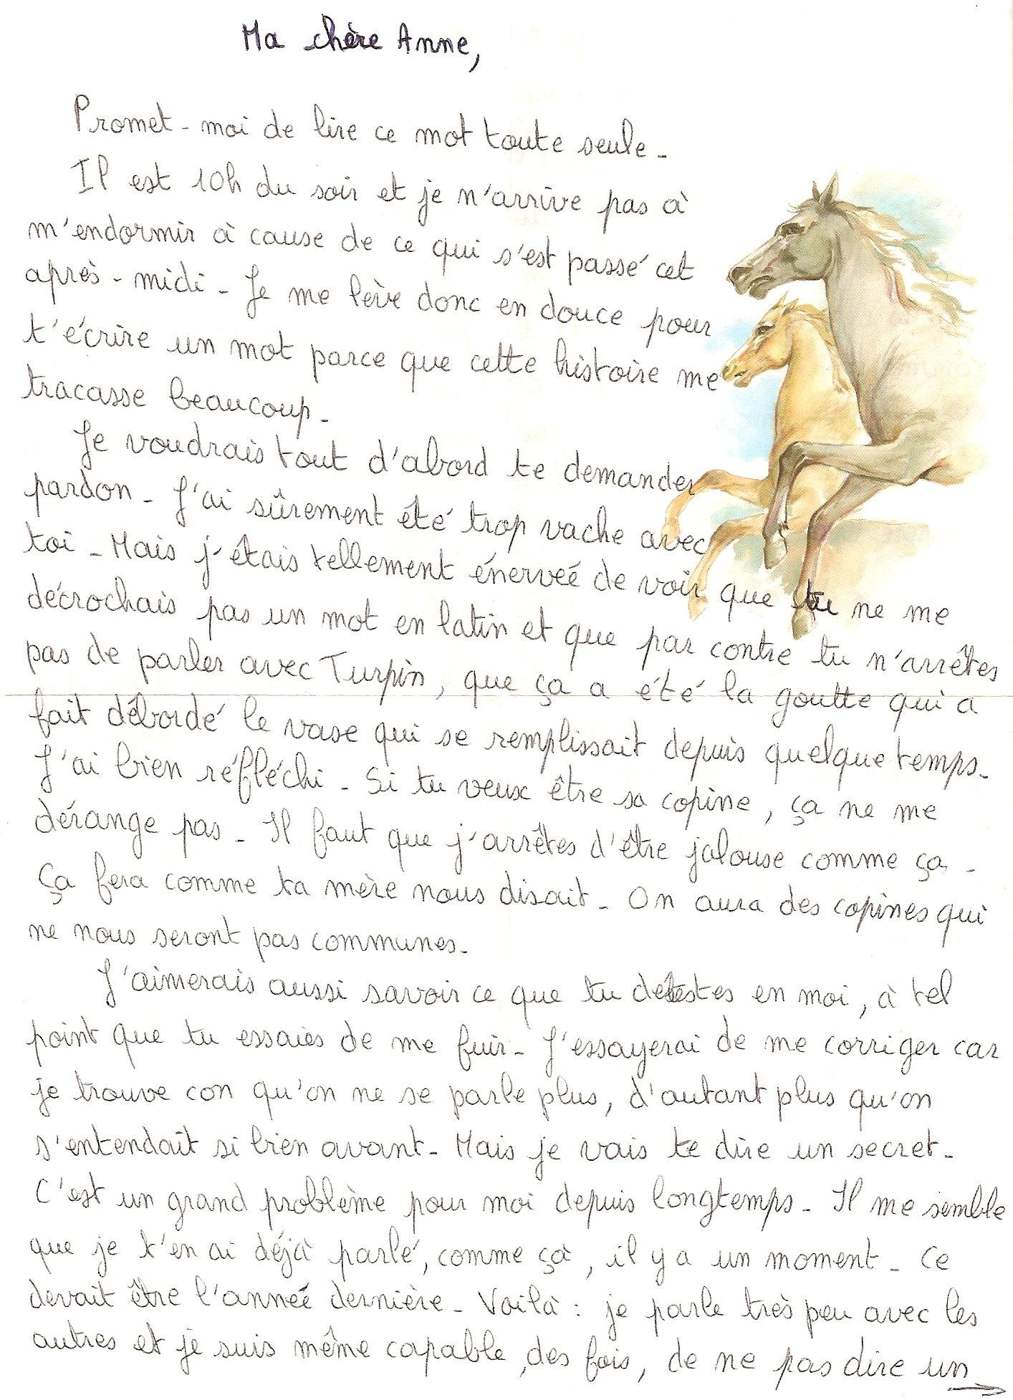 Ma chère Anne,
Promet-moi de lire ce mot toute seule.
Il est 10h du soir et je n'arrive pas à
m'endormir à cause de ce qui s'est passé cet
après-midi. Je me lève donc en douce pour
t'écrire un mot parce que cette histoire me
tracasse beaucoup.
Je voudrais tout d'abord te demander
pardon. J'ai sûrement été trop vache avec
toi. Mais j'étais tellement énerveé de voir que tu ne me
décrochais pas un mot en latin et que par contre tu n'arrêtes
pas de parler avec Turpin, que ça a été la goutte qui a
fait débordé le vase qui se remplissait depuis quelque temps.
J'ai bien réfléchi. Si tu veux être sa copine, ça ne me
dérange pas. Il faut que j'arrêtes d'être jalouse comme ça.
Ça fera comme ta mère nous disait. On aura des copines qui
ne nous seront pas communes.
J'aimerais aussi savoir ce que tu détestes en moi, à tel
point que tu essaies de me fuir. J'essayerai de me corriger car
je trouve con qu'on ne se parle plus, d'autant plus qu'on
s'entendait si bien avant. Mais je vais te dire un secret.
C'est un grand problème pour moi depuis longtemps. Il me semble
que je t'en ai déjà parlé, comme ça, il y a un moment. Ce
devait être l'anneé dernière. Voilà : je parle très peu avec les
autres et je suis même capable, des fois, de ne pas dire un
→